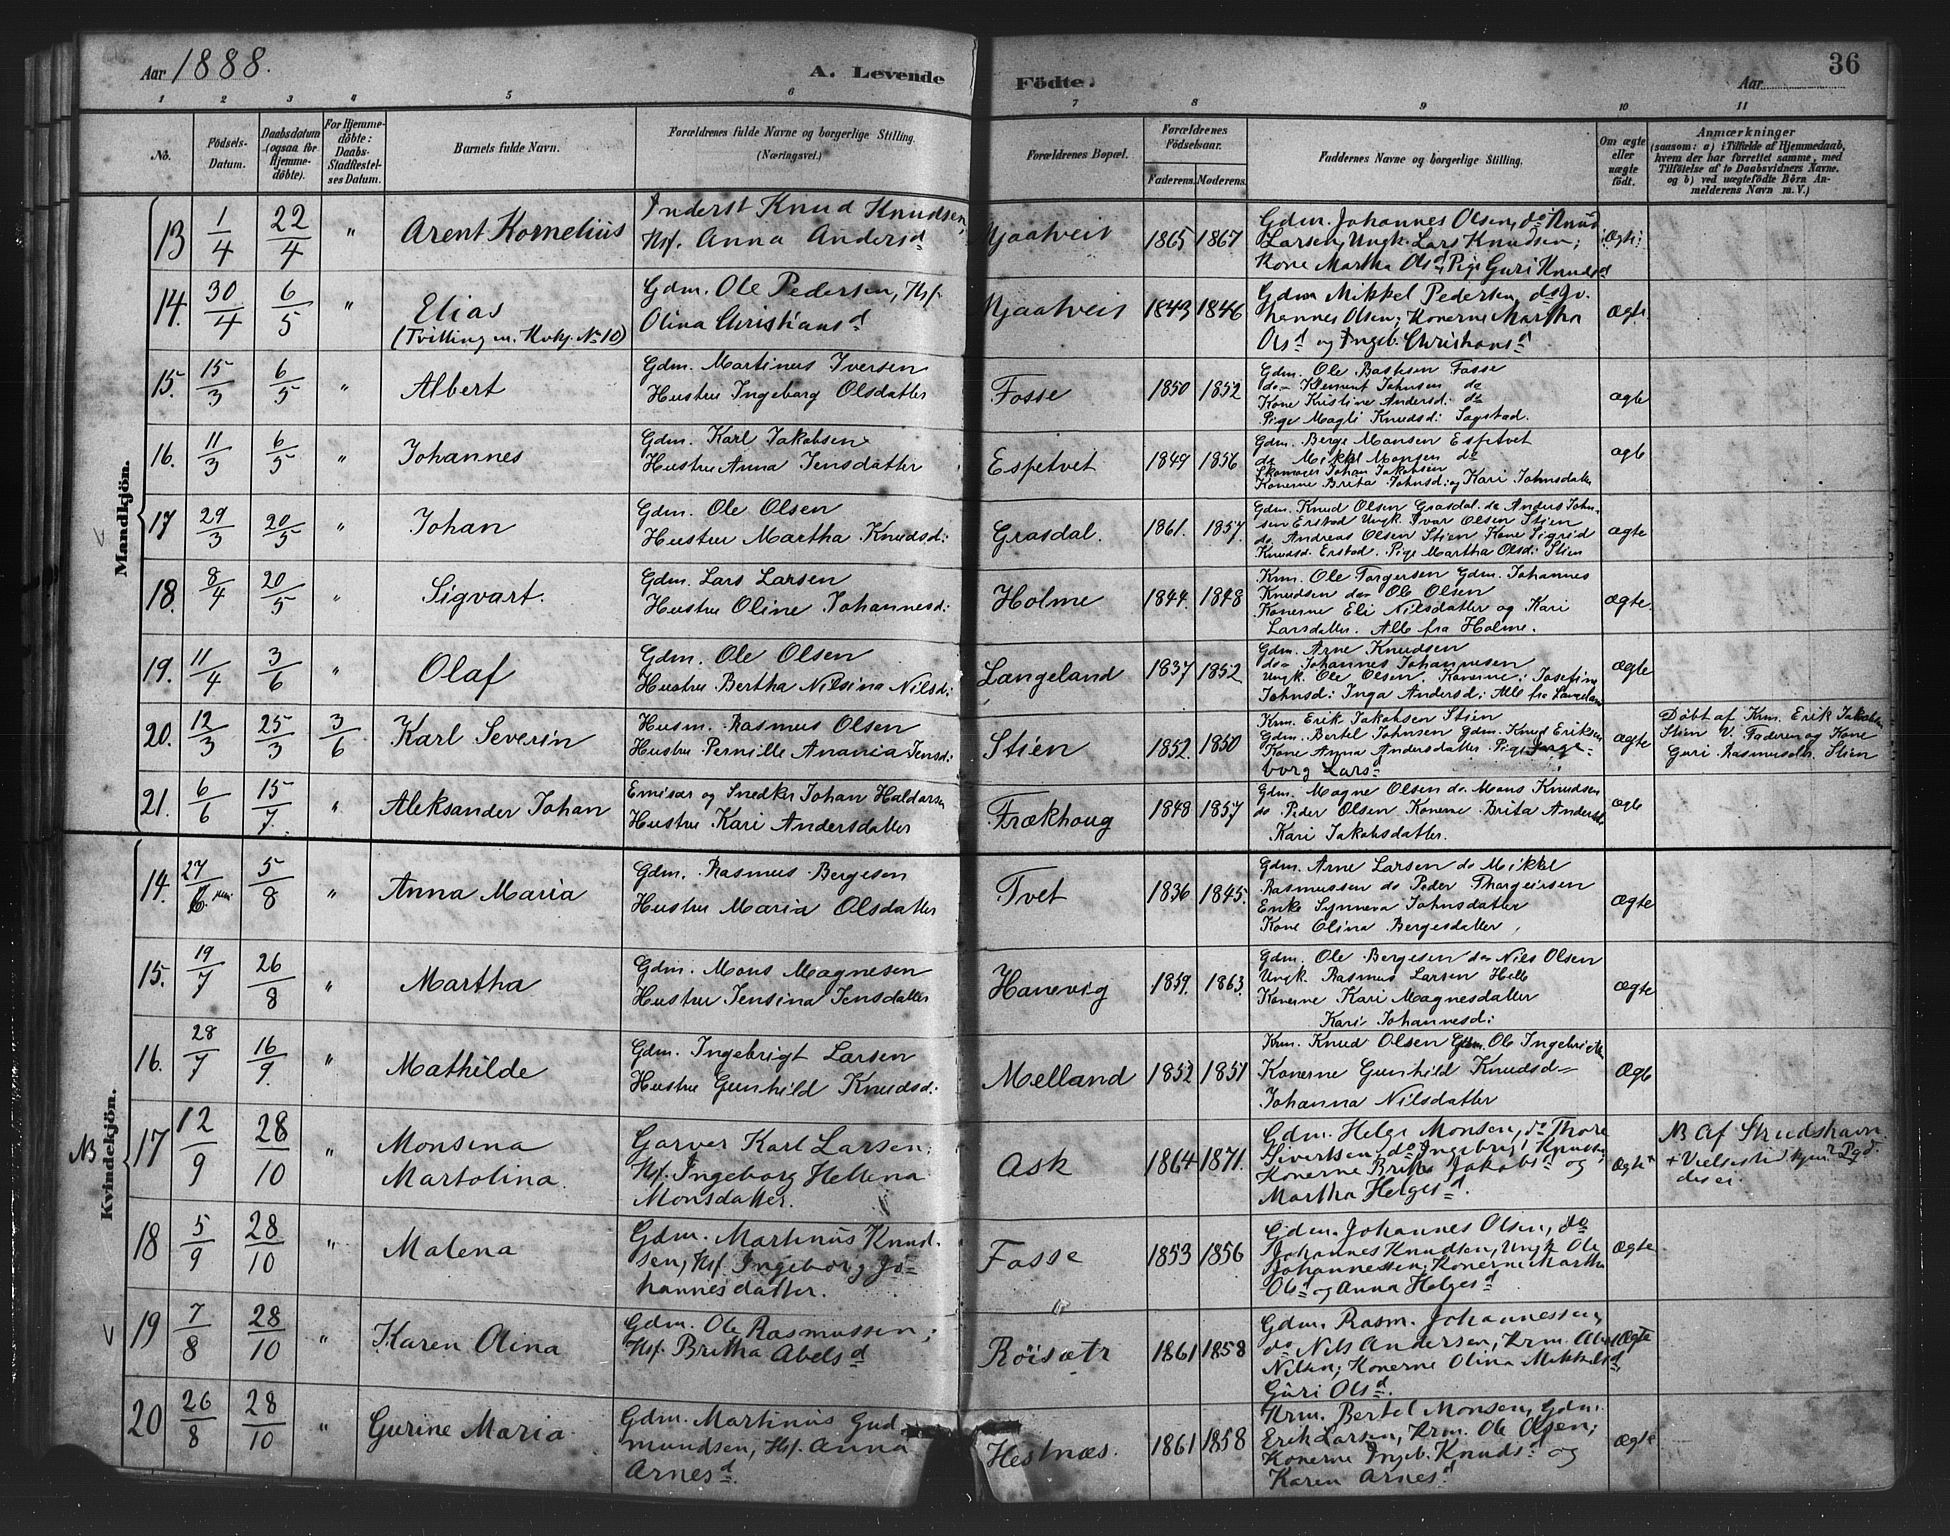 Aar 1888.
A. Levende Födte.
Aar
36
1 2 3 4 5 6 7 8 9 10 11
No.
Födsels-Datum.
Daabsdatum (ogsaa for Hjemme-döbte).
For Hjemme-döbte: Daabs-Stadfæstel-ses Datum.
Barnets fulde Navn.
Forældrenes fulde Navne og borgerlige Stilling. (Næringsvei.)
Forældrenes Bopæl.
Forældrenes Födselsaar.
Faderens. Moderens.
Faddernes Navne og borgerlige Stilling.
Om ægte eller uægte födt.
Anmærkninger
(saasom: a) i Tilfælde af Hjemmedaab,
hvem der har forrettet samme, med
Tilföielse af to Daabsvidners Navne,
og b) ved uægtefödte Börn An-
melderens Navn m. V.)
Mandkjön.
13 1/4 22/4 " Arent Kornelius
Inderst Knud Knudsen,
Hsf. Anna Andersd
Mjaatveit 1865 1867
Gdm. Johannes Olsen, do Knud
Larsen, Ungk. Lars Knudsen;
Kone Martha Olsd, Pige Guri Knudsd
Ægte
14. 30/4 6/5 " Elias
(Tvilling m. Kvkj. No 10)
Gdm. Ole Pedersen, Hsf.
Olina Christiansd
Mjaatveit 1843 1846
Gdm Mikkel Pedersen, do Jo-
hannes Olsen; Konerne Martha
Olsd og Ingeb. Christiansd
Ægte
15. 15/3 6/5 " Albert
Gdm. Martinus Iversen
Hustru Ingeborg Olsdatter
Fosse 1850 1852
Gdm. Ole Bastesen Fosse
do Klement Johnsen do
Kone Kristine Andersd: do
Pige Magli Knudsd: Sagstad.
ægte
16. 11/3 6/5 " Johannes
Gdm. Karl Jakobsen
Hustru Anna Jensdatter
Espetvet 1849 1856
Gdm. Berge Monsen Espetvet
do Mikkel Monsen do
Skomager Johan Jakobsen
Konerne Brita Johnsd: og Kari Johnsdatter
ægte
17 29/3 20/5 " Johan
Gdm. Ole Olsen
Hustru Martha Knudsd:
Grasdal. 1861. 1857.
Gdm. Knud Olsen Grasdal. do Anders John-
sen Erstad Ungk. Ivar Olsen Stien
do Andreas Olsen Stien Kone Sigrid
Knudsd. Erstad. Pige Martha Olsd: Stien
ægte
18. 8/4 20/5 " Sigvart.
Gdm. Lars Larsen
Hustru Oline Johannesd:
Holme 1844. 1848
Krm. Ole Torgersen Gdm. Johannes
Knudsen do Ole Olsen
Konerne Eli Nilsdatter og Kari
Larsdatter. Alle fra Holme.
ægte.
19. 11/4 3/6 " Olaf
Gdm. Ole Olsen
Hustru Bertha Nilsina Nilsd:
Langeland 1837 1852
Gdm. Arne Knudsen
do Johannes Johannesen
Ungk. Ole Olsen. Konerne: Josefine
Johnsd: Inga Andersd: Alle fra Langeland
ægte
20. 12/3 25/3 3/6 Karl Severin
Husm. Rasmus Olsen
Hustru Pernille Anania Jensd:
Stien 1852. 1850
Krm. Erik Jakobsen Stien
Gdm. Bertel Johnsen Gdm. Knud Eriksen
Kone Anna Andersdatter Pige Inge-
borg Larsd
ægte
Döbt af Krm. Erik Jakobsen
Stien V. Faderen og Kone
Guri Rasmusdtr. Stien
21. 6/6 15/7. " Aleksander Johan
Emisær og Snedker Johan Haldorsen
Hustru Kari Andersdatter
Frækhoug 1848 1857
Gdm. Magne Olsen do Mons Knudsen
do Peder Olsen Konerne Brita Andersd:
Kari Jakobsdatter.
ægte
Kvindekjön.
14. 27/6 5/8 " Anna Maria
Gdm. Rasmus Bergesen
Hustru Maria Olsdatter
Tvet 1836 1845.
Gdm. Arne Larsen do Mikkel
Rasmussen do Peder Thorgeirsen
Enke Synneva Johnsdatter
Kone Olina Bergesdatter
Ægte
15. 19/7 26/8 " Martha
Gdm. Mons Magnesen
Hustru Jensina Jensdatter
Hanevig 1859. 1863.
Gdm. Ole Bergesen do Nils Olsen
Ungk. Rasmus Larsen Helle
Konerne Kari Magnesdatter
Kari Johannesd:
Ægte
16. 28/7 16/9. " Mathilde
Gdm. Ingebrigt Larsen
Hustru Gunhild Knudsd:
Melland 1852 1851
Krm. Knud Olsen Gdm. Ole
Konerne Gunhild Knudsd
Johanna Nilsdatter
Ægte
NB 17 12/9 28/10 " Monsina
Martolina.
Garver Karl Larsen;
Hsf. Ingeborg Hellena
Monsdatter.
Ask 1864 1871.
Gdm. Helge Monsen, do Thore
Sivertsen, do Ingebrigt Knudsen,
Konerne Britha Jakobsd og
Martha Helgesd.
Ægte
NB Af Strudshavn
18 5/9 28/10 " Malena
Gdm. Martinus Knud-
sen, Hsf. Ingeborg Jo-
hannesdatter.
Fosse 1853 1856
Gdm. Johannes Olsen, do
Johannes Knudsen, Ungk Ole
Johannessen; Konerne Martha
Olsd og Anna Helgesd
Ægte
19 7/8 28/10 " Karen Olina
Gdm. Ole Rasmussen;
Hsf. Britha Abelsd
Röisætr 1861 1858
Gdm. Rasm. Johannessen,
do Nils Andersen, Krm. Abel
Nilsen; Konerne Olina Mikkelsd,
Guri Olsd.
Ægte
20 26/8 28/10 " Gurine Maria
Gdm. Martinus Gud-
mundsen, Hsf. Anna
Arnesd.
Hestnæs. 1861 1858
Krm. Bertel Monsen, Gdm.
Erik Larsen, Krm. Ole Olsen;
Konerne Ingeb. Knudsd og
Karen Arnesd
Ægte